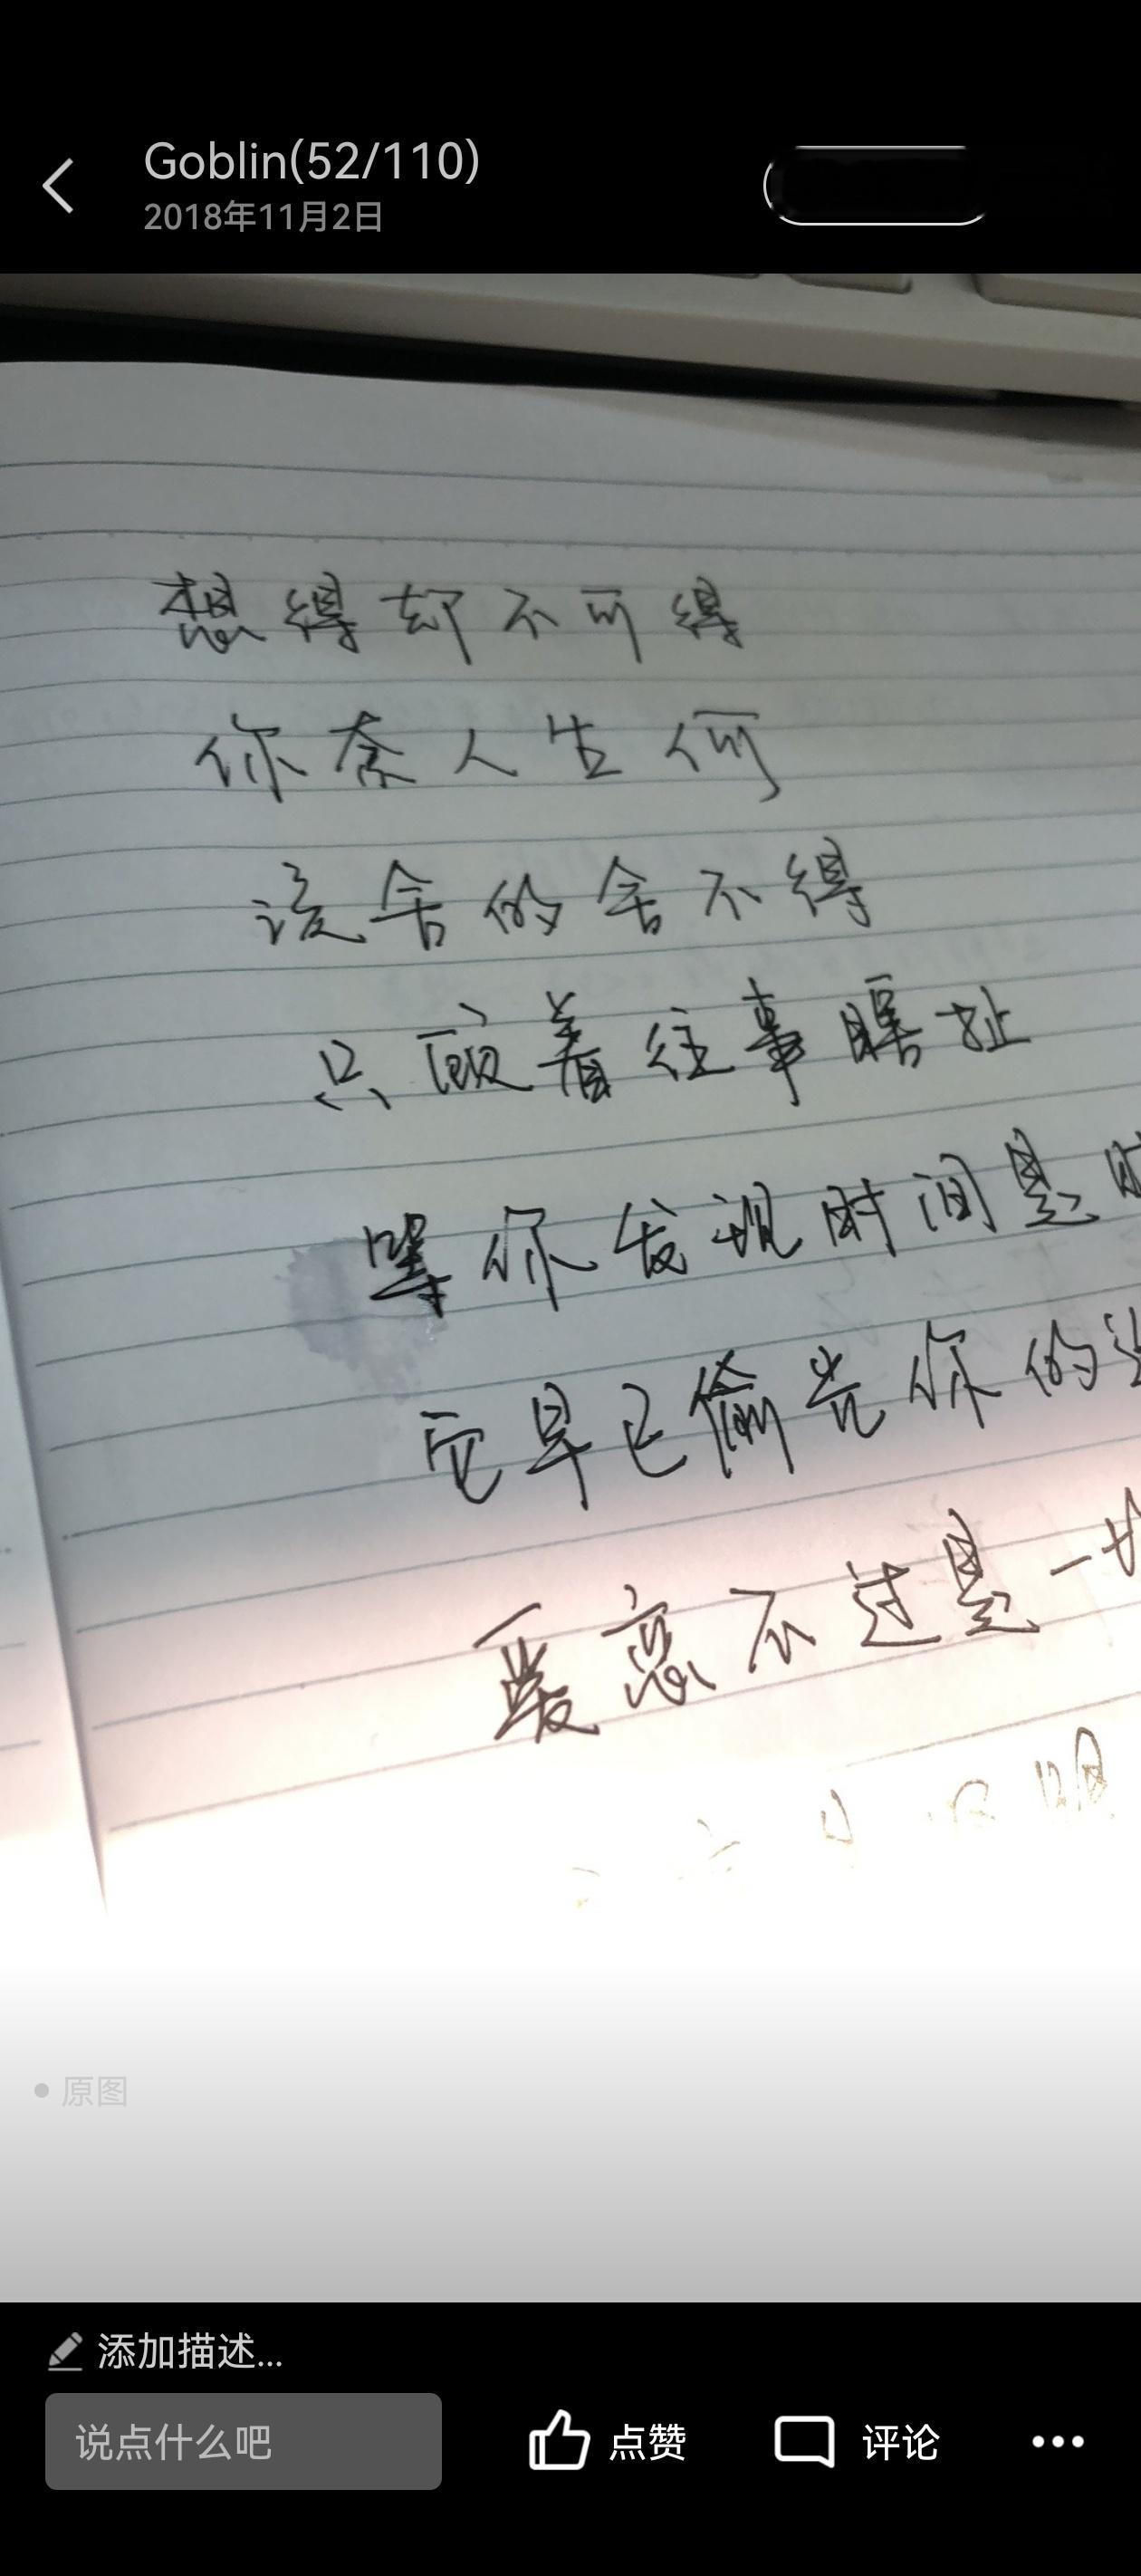 Goblin(52/110)
2018年11月2日
想得却不可得
你奈人生何
该舍的舍不得
只顾着往事瞎扯
等你发现时间是
它早已偷光你的
爱恋不过是一
原图
添加描述...
说点什么吧
点赞
评论